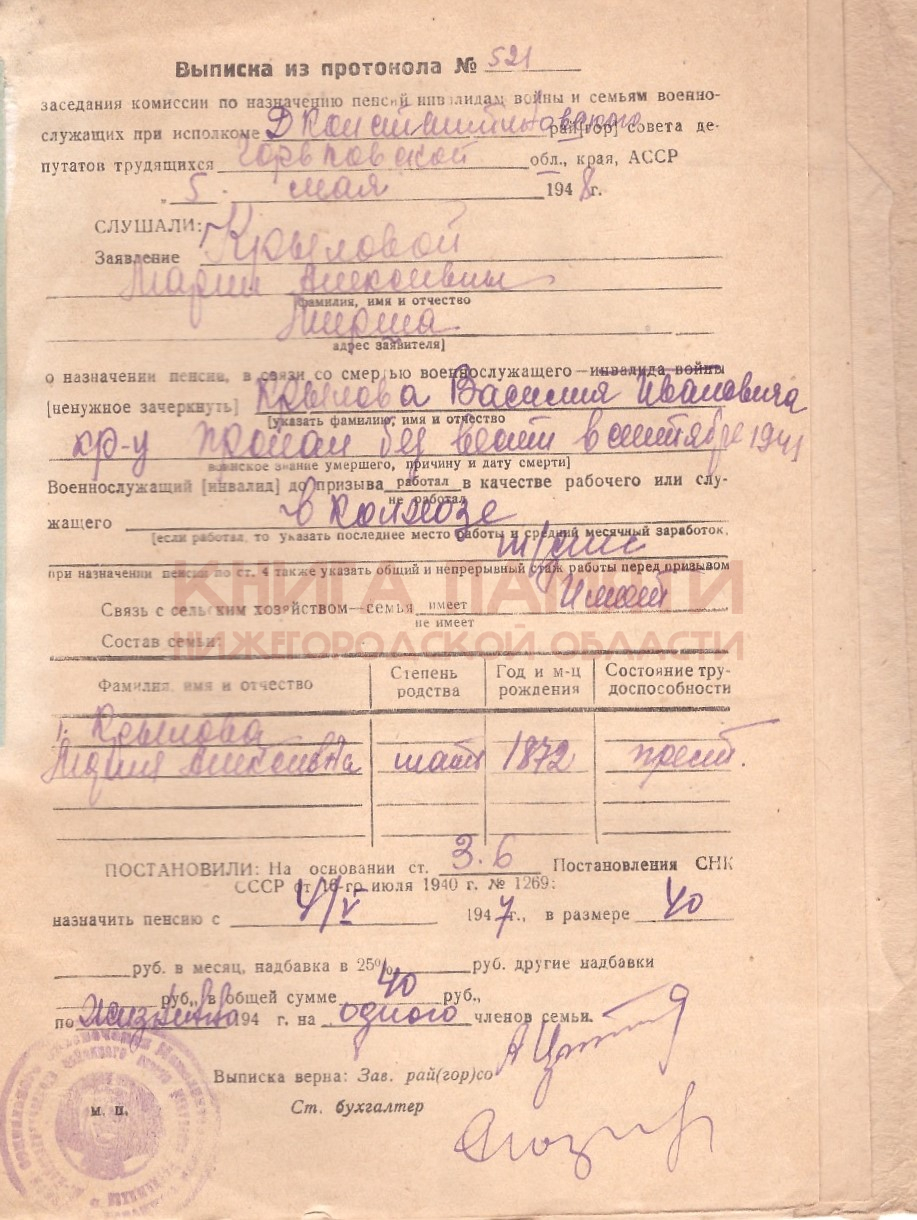 Выписка из протокола № 521
заседания комиссии по назначению пенсий инвалидам войны и семьям военно-
служащих при исполкоме Д Константиновского рай[гор] совета де-
путатов трудящихся Горьковской обл., края, АССР
„ 5 . мая 1948 г.
СЛУШАЛИ:
Заявление Крыловой
Марии Алексеевны
[фамилия, имя и отчество
адрес заявителя]
о назначении пенсии, в связи со смертью военнослужащего—инвалида войны
[ненужное зачеркнуть] Крылова Василия Ивановича
[указать фамилию, имя и отчество
кр-ц пропал без вести в сентябре 1941
воинское звание умершего, причину и дату смерти]
Военнослужащий [инвалид] до призыва работал в качестве рабочего или слу-
не работал
жащего в колхозе
[если работал, то указать последнее место работы и средний месячный заработок,
при назначении пенсии по ст. 4 также указать общий и непрерывный стаж работы перед призывом
КНИГА ПАМЯТИ
Связь с сельским хозяйством—семья имеет
не имеет
НИЖЕГОРОДСКОЙ ОБЛАСТИ
Состав семьи:
Фамилия, имя и отчество Степень родства Год и м-ц рождения Состояние тру-доспособности
1. Крылова
Мария Алексеевна мать 1872 прест.
ПОСТАНОВИЛИ: На основании ст. 3.6 Постановления СНК
СССР от 16-го июля 1940 г. № 1269:
назначить пенсию с 4/V 1947 г., в размере 40
руб. в месяц, надбавка в 25% руб. другие надбавки
руб., в общей сумме 40 руб.,
по 194 г. на одного членов семьи.
Выписка верна: Зав. рай(гор)со
м. п.
Ст. бухгалтер